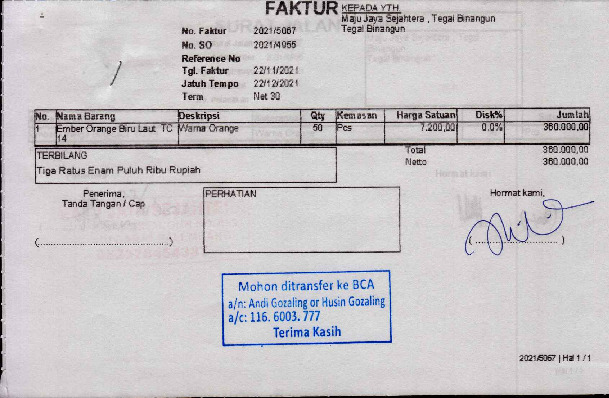 FAKTUR
KEPADA YTH.
Maju Jaya Sejahtera , Tegal Binangun
Tegal Binangun
No. Faktur 2021/5067
No. SO 2021/4955
Reference No
Tgl. Faktur 22/11/2021
Jatuh Tempo 22/12/2021
Term Net 30
No. Nama Barang Deskripsi Qty Kemasan Harga Satuan Disk% Jumlah
1 Ember Orange Biru Laut TC Warna Orange 50 Pcs 7.200,00 0.0% 360.000,00
14
TERBILANG
Tiga Ratus Enam Puluh Ribu Rupiah
Total 360.000,00
Netto 360.000,00
Penerima,
Tanda Tangan / Cap
(..............................)
PERHATIAN
Hormat kami,
(..............................)
Mohon ditransfer ke BCA
a/n: Andi Gozaling or Husin Gozaling
a/c: 116. 6003. 777
Terima Kasih
2021/5067 | Hal 1 / 1